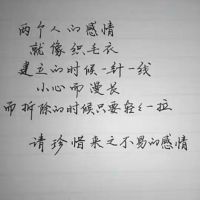 两个人的感情
就像织毛衣
建立的时候一针一线
小心而漫长
而拆除的时候只要轻轻一拉
请珍惜来之不易的感情